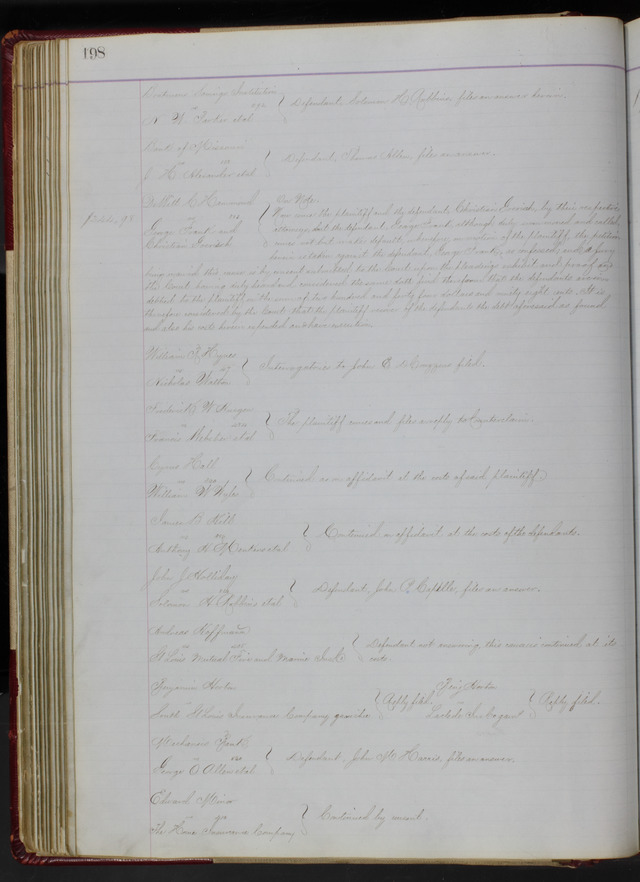 198
Boatmens Savings Institution
vs
N. W. Parker et al
Defendant, Solomon H. Laflin, files an answer herein.
Bank of Missouri
vs
J H Alexander et al
Defendant, Thomas Allen, files an answer.
DeWitt C Hammond
vs
George Frank and
Christian Gerrish
On Note.
Now come the plaintiff and the defendant, Christian Gerrish, by their respective
attorneys, but the defendant George Frank, although duly summoned and called,
comes not but makes default, wherefore on motion of the plaintiff, the petition
herein is taken against the defendant, George Frank, as confessed, and a jury
being waived this cause is by consent submitted to the Court upon the pleadings and proof and
the Court having duly heard and considered the same doth find therefrom that the defendants are
indebted to the plaintiff in the sum of two hundred and forty four dollars and ninety eight cents. It is
therefore considered by the Court that the plaintiff recover of the defendants the debt aforesaid as found
and also his costs herein expended and have execution.
William F. Hynes
vs
Nicholas Walton
Interrogatories to John E filed.
Frederick W.
vs
Francis Webster et al
The plaintiff comes and files a reply to Counterclaim.
Cyrus Hall
vs
William W Wyler
Continued on affidavit at the costs of said plaintiff.
James B. Hill
vs
Anthony et al
Continued on affidavit at the costs of the defendants.
John J Holliday
vs
Solomon H Laflin et al
Defendant, John C. files an answer.
Andreas Hoffmann
vs
St Louis Mutual Fire and Marine Ins Co
Defendant not answering this cause is continued at its
costs.
Benjamin Horton
vs
South St Louis Insurance Company
Reply filed.
Benj Horton
vs
Reply filed.
Mechanics Bank
vs
George O. et al
Defendant, John W Harris, files an answer.
Edward Minor
vs
The Home Insurance Company
Continued by consent.